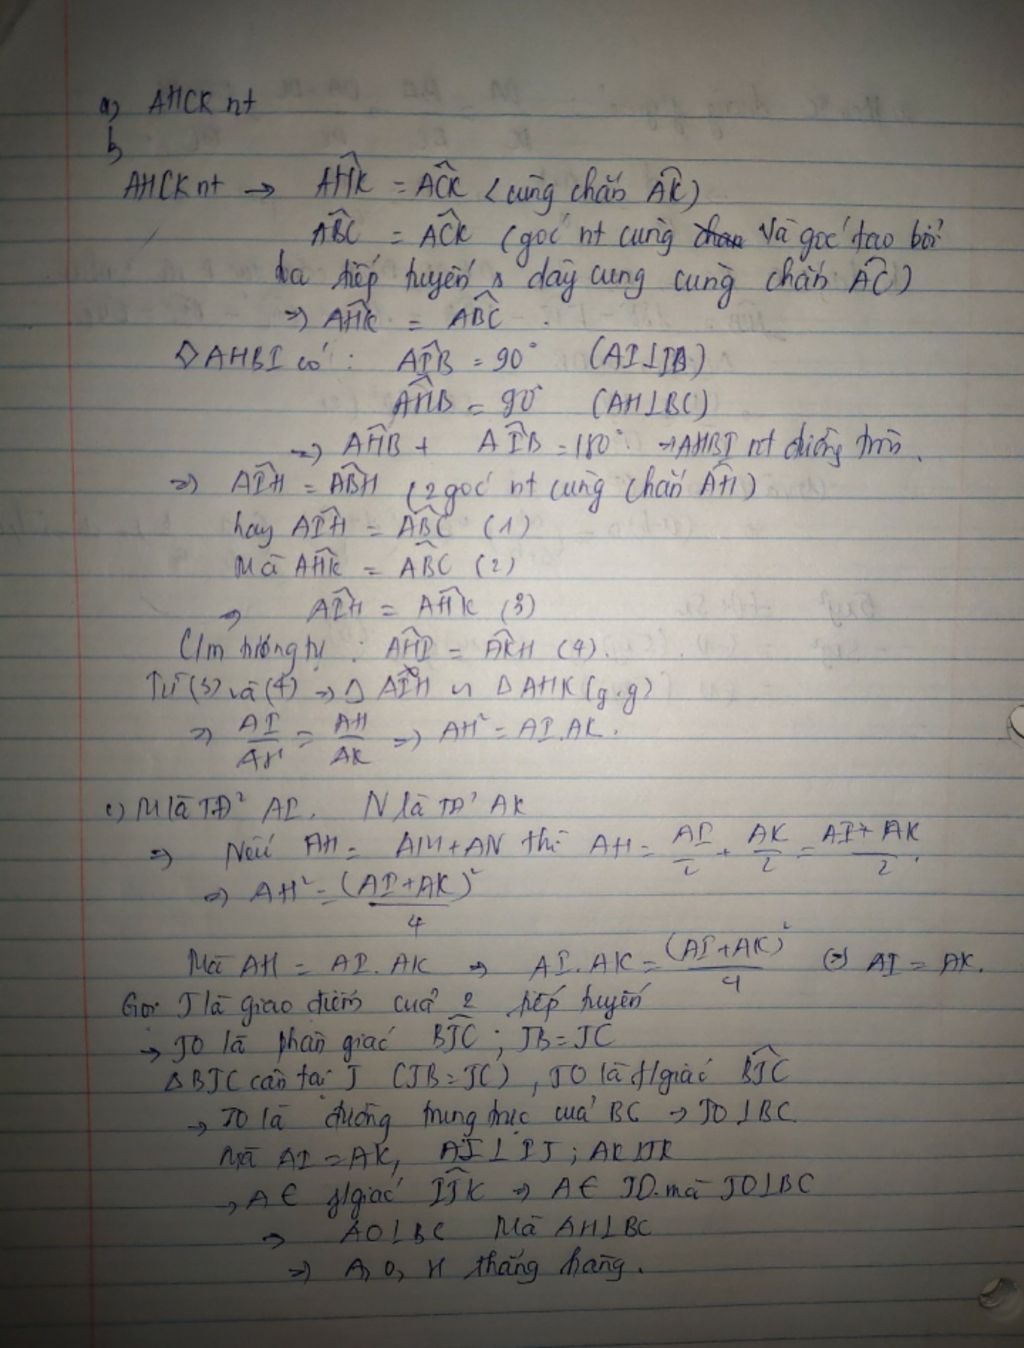 a) AHCK nt
b,
AHCK nt → AĤK = AĈK (cùng chắn AK)
AB̂C = AĈK (góc nt cùng và góc tạo bởi
tia tiếp tuyến & dây cung cùng chắn AC)
=> AĤK = AB̂C.
◇AHBI có: AÎB = 90° (AI⊥IB)
AĤB = 90° (AH⊥BC)
=> AĤB + AÎB = 180° → AHBI nt đường tròn.
=> AÎH = AB̂H (2 góc nt cùng chắn AH)
hay AÎH = AB̂C (1)
Mà AĤK = AB̂C (2)
=> AÎH = AĤK (3)
C/m tương tự: AĤI = AK̂H (4).
Từ (3) và (4) => Δ AIH ∽ Δ AHK (g.g)
=> AI/AH = AH/AK => AH² = AI.AK.
c) M là TĐ² AI, N là TĐ² AK
=> Nếu AH = AM+AN thì AH = AI/2 + AK/2 = (AI+AK)/2.
=> AH² = (AI+AK)²/4
Mà AH = AI.AK => AI.AK = (AI+AK)²/4 (=) AI = AK.
Gọi J là giao điểm của 2 tiếp tuyến
→ JO là phân giác BĴC; JB=JC
ΔBJC cân tại J (JB=JC), JO là f/giác BĴC
→ JO là đường trung trực của BC → JO⊥BC
Mà AI = AK, AI⊥IJ; AK⊥JK
→ A∈ f/giác IĴK => A∈ JO. mà JO⊥BC
=> AO⊥BC Mà AH⊥BC
=> A, O, H thẳng hàng.